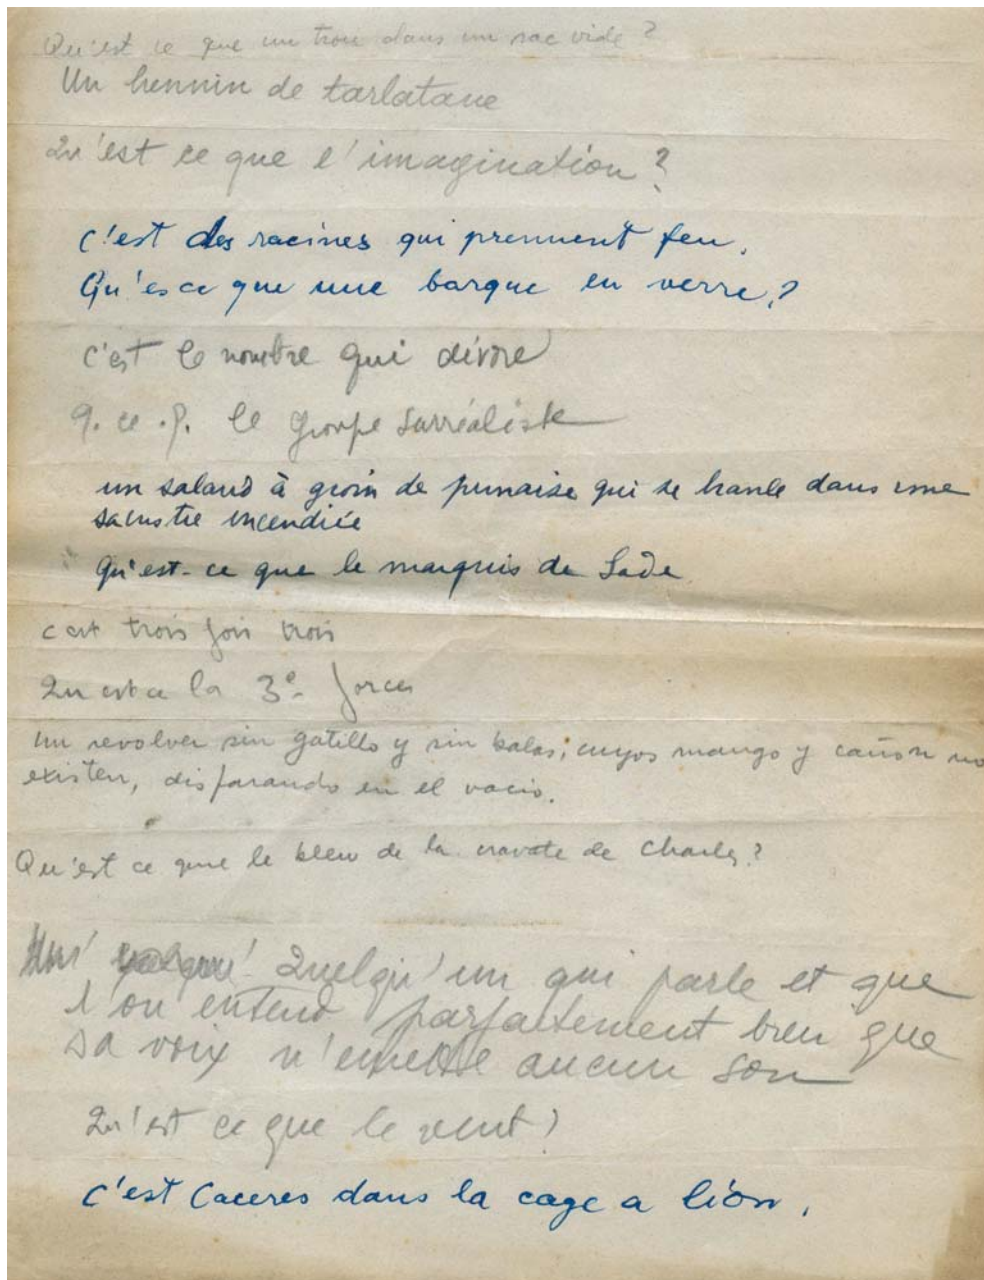 Qu'est ce que un trou dans un sac vide ?
Un hennin de tarlatane
Qu'est ce que l'imagination ?
C'est des racines qui prennent feu.
Qu'es ce que une barque en verre ?
c'est le nombre qui dévore
q. ce. q. le groupe surréaliste
un salaud à groin de punaise qui se branle dans une
incendiée
Qu'est-ce que le marquis de Sade
c'est trois fois trois
Qu est ce la 3e force
un revolver sin gatillo y sin balas, cuyos mango y cañon no
existen, disparando en el vacio.
Qu'est ce que le bleu de la cravate de Charles ?
Quelqu'un qui parle et que
l'on entend parfaitement bien que
sa voix n'emette aucun son
Qu'est ce que le vent ?
C'est Caceres dans la cage a lion.